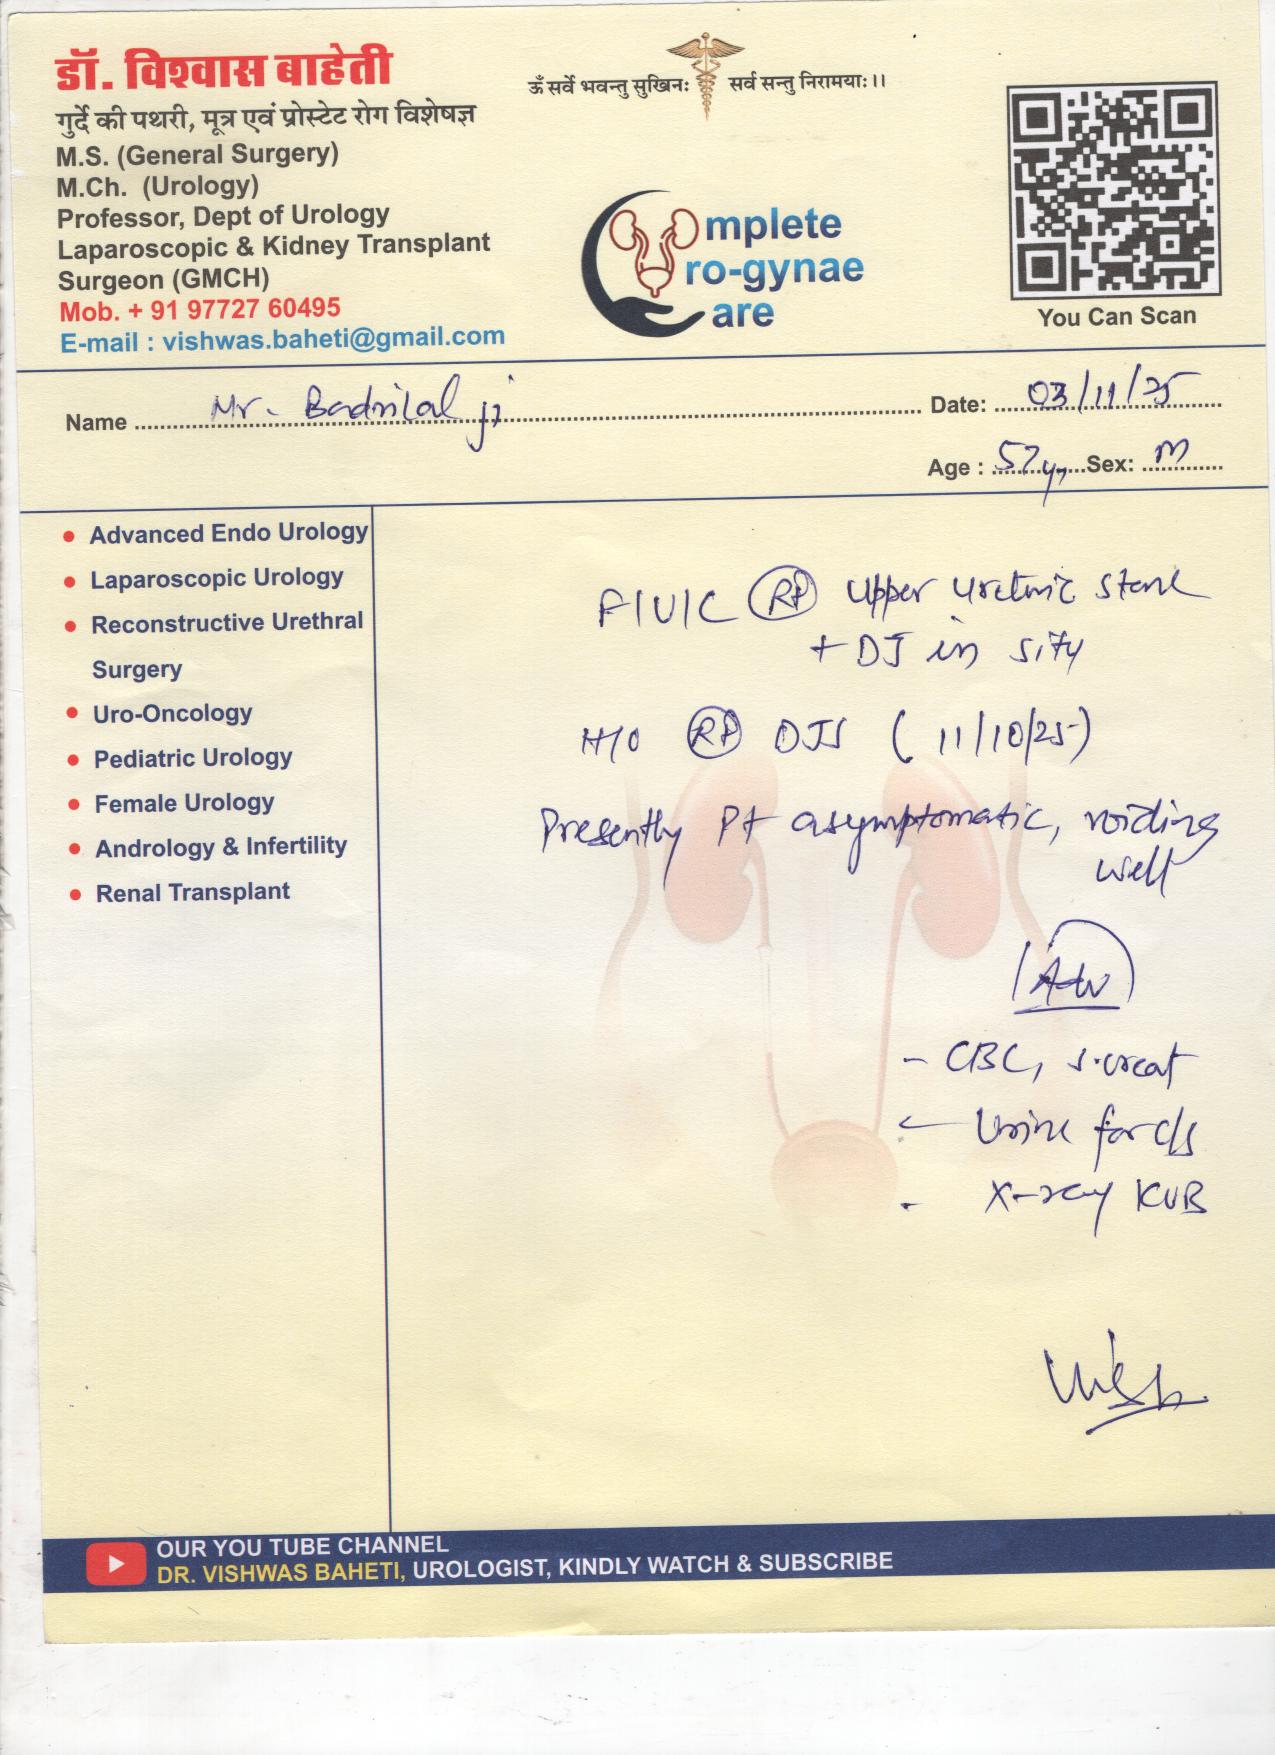 डॉ. विश्वास बाहेती
गुर्दे की पथरी, मूत्र एवं प्रोस्टेट रोग विशेषज्ञ
M.S. (General Surgery)
M.Ch. (Urology)
Professor, Dept of Urology
Laparoscopic & Kidney Transplant
Surgeon (GMCH)
Mob. + 91 97727 60495
E-mail : vishwas.baheti@gmail.com
ॐ सर्वे भवन्तु सुखिनः सर्व सन्तु निरामयाः।।
omplete
ro-gynae
are
You Can Scan
Name Mr. Badrilal ji
Date: 03/11/25
Age : 57yr Sex: M
• Advanced Endo Urology
• Laparoscopic Urology
• Reconstructive Urethral
Surgery
• Uro-Oncology
• Pediatric Urology
• Female Urology
• Andrology & Infertility
• Renal Transplant
F/U/C Upper Ureteric Stone
+ DJ in situ
H/O DJS (11/10/25)
Presently Pt asymptomatic, voiding
well
Adv
- CBC, s.creat
- Urine for c/s
- X-ray KUB
OUR YOU TUBE CHANNEL
DR. VISHWAS BAHETI, UROLOGIST, KINDLY WATCH & SUBSCRIBE